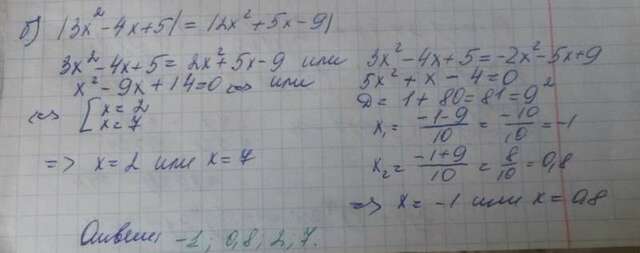 б) |3x² - 4x + 5| = |2x² + 5x - 9|
3x² - 4x + 5 = 2x² + 5x - 9 или 3x² - 4x + 5 = -2x² - 5x + 9
x² - 9x + 14 = 0 <=> или 5x² + x - 4 = 0
<=> [ x = 2
x = 7
=> x = 2 или x = 7
D = 1 + 80 = 81 = 9²
x₁ = (-1-9)/10 = -10/10 = -1
x₂ = (-1+9)/10 = 8/10 = 0,8
=> x = -1 или x = 0,8
Ответ: -1; 0,8; 2, 7.